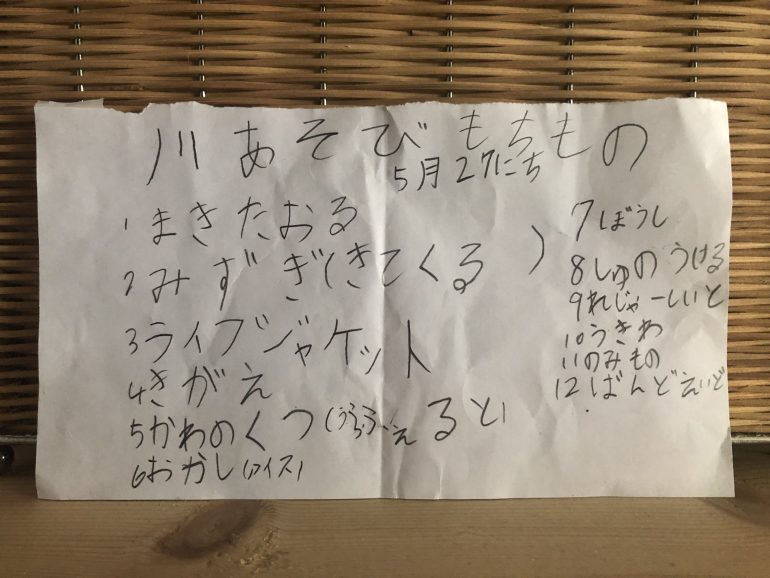 川あそびもちもの
5月27にち
1まきたおる
2みずぎ(きてくる)
3ライフジャケット
4きがえ
5かわのくつ(うらふぇると)
6おかし(アイス)
7ぼうし
8しゅのうける
9れじゃーしいと
10うきわ
11のみもの
12ばんどえいど